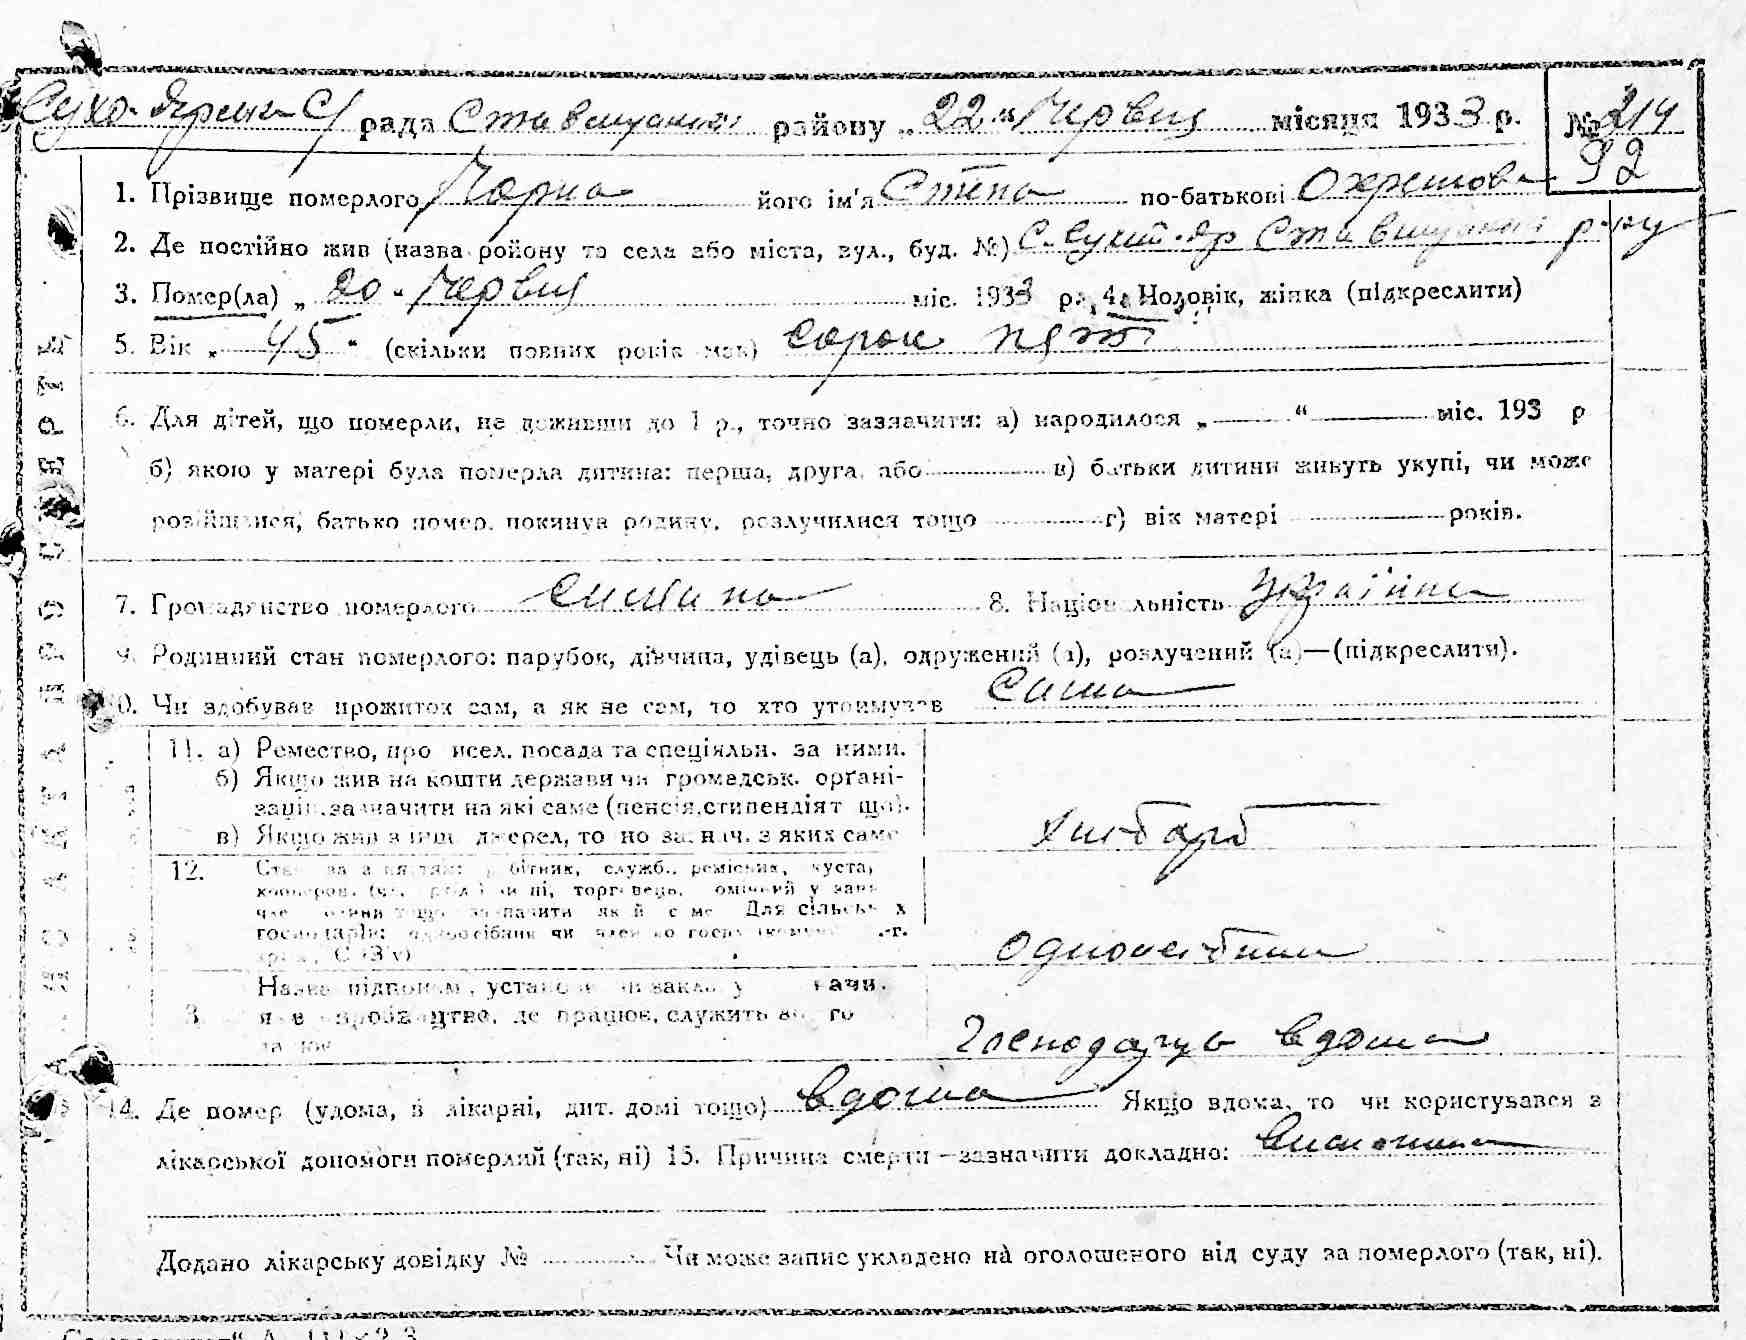 Сухо-Ярська С/ рада Ставищанськ району „22“ Червня місяця 1933 р. № 214
92
1. Прізвище померлого Чорна його ім'я Степа по-батькові
2. Де постійно жив (назва району та села або міста, вул., буд. №) с. Сухий-Яр Ставищанськ р-ну
3. Помер(ла) „20“ Червня міс. 1933 р., 4. Чоловік, жінка (підкреслити)
5. Вік „45“ (скільки повних років мав) сорок пять
6. Для дітей, що померли, не доживши до 1 р., точно зазначити: а) народилося „ “ міс. 193 р
б) якою у матері була померла дитина: перша, друга, або в) батьки дитини живуть укупі, чи може
розійшлися, батько помер, покинув родину, розлучилися тощо г) вік матері років.
7. Громадянство померлого 8. Національність Українка
9. Родинний стан померлого: парубок, дівчина, удівець (а), одружений (а), розлучений (а)—(підкреслити).
10. Чи здобував прожиток сам, а як не сам, то хто утримував Сама
11. а) Ремество, про исел. посада та спеціяльн. за ними.
б) Якщо жив на кошти держави чи громадськ. орґані-
зацій, зазначити на які саме (пенсія, стипендіят що).
в) Якщо жив з інш. джерел, то но зазнач. з яких саме
Хлібороб
12. Стан за робітник, служб., ремісник, куста,
торговець,
зазначити Для сільськ х
господарів: одноосібник чи член
Одноосібник
Назва підприєм., установи чи закладу
13. виробництво, де працює, служить
Господарць вдома
14. Де помер (удома, в лікарні, дит. домі тощо) вдома Якщо вдома, то чи користувався з
лікарської допомоги померлий (так, ні) 15. Причина смерти—зазначити докладно:
Додано лікарську довідку № Чи може запис укладено на оголошеного від суду за померлого (так, ні).